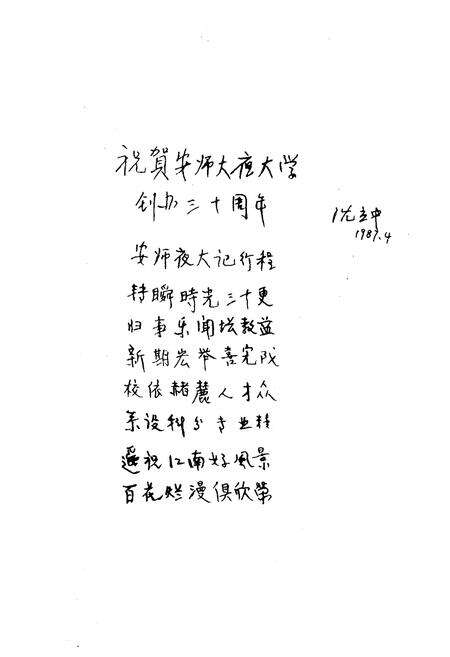 祝賀安师大夜大学
创办三十周年
沈立中
1987.4
安师夜大记行程
转瞬時光三十更
归事乐闻坛教益
新期宏举喜完成
校依赭麓人才众
系设科分专业精
遥祝江南好風景
百花烂漫俱欣榮